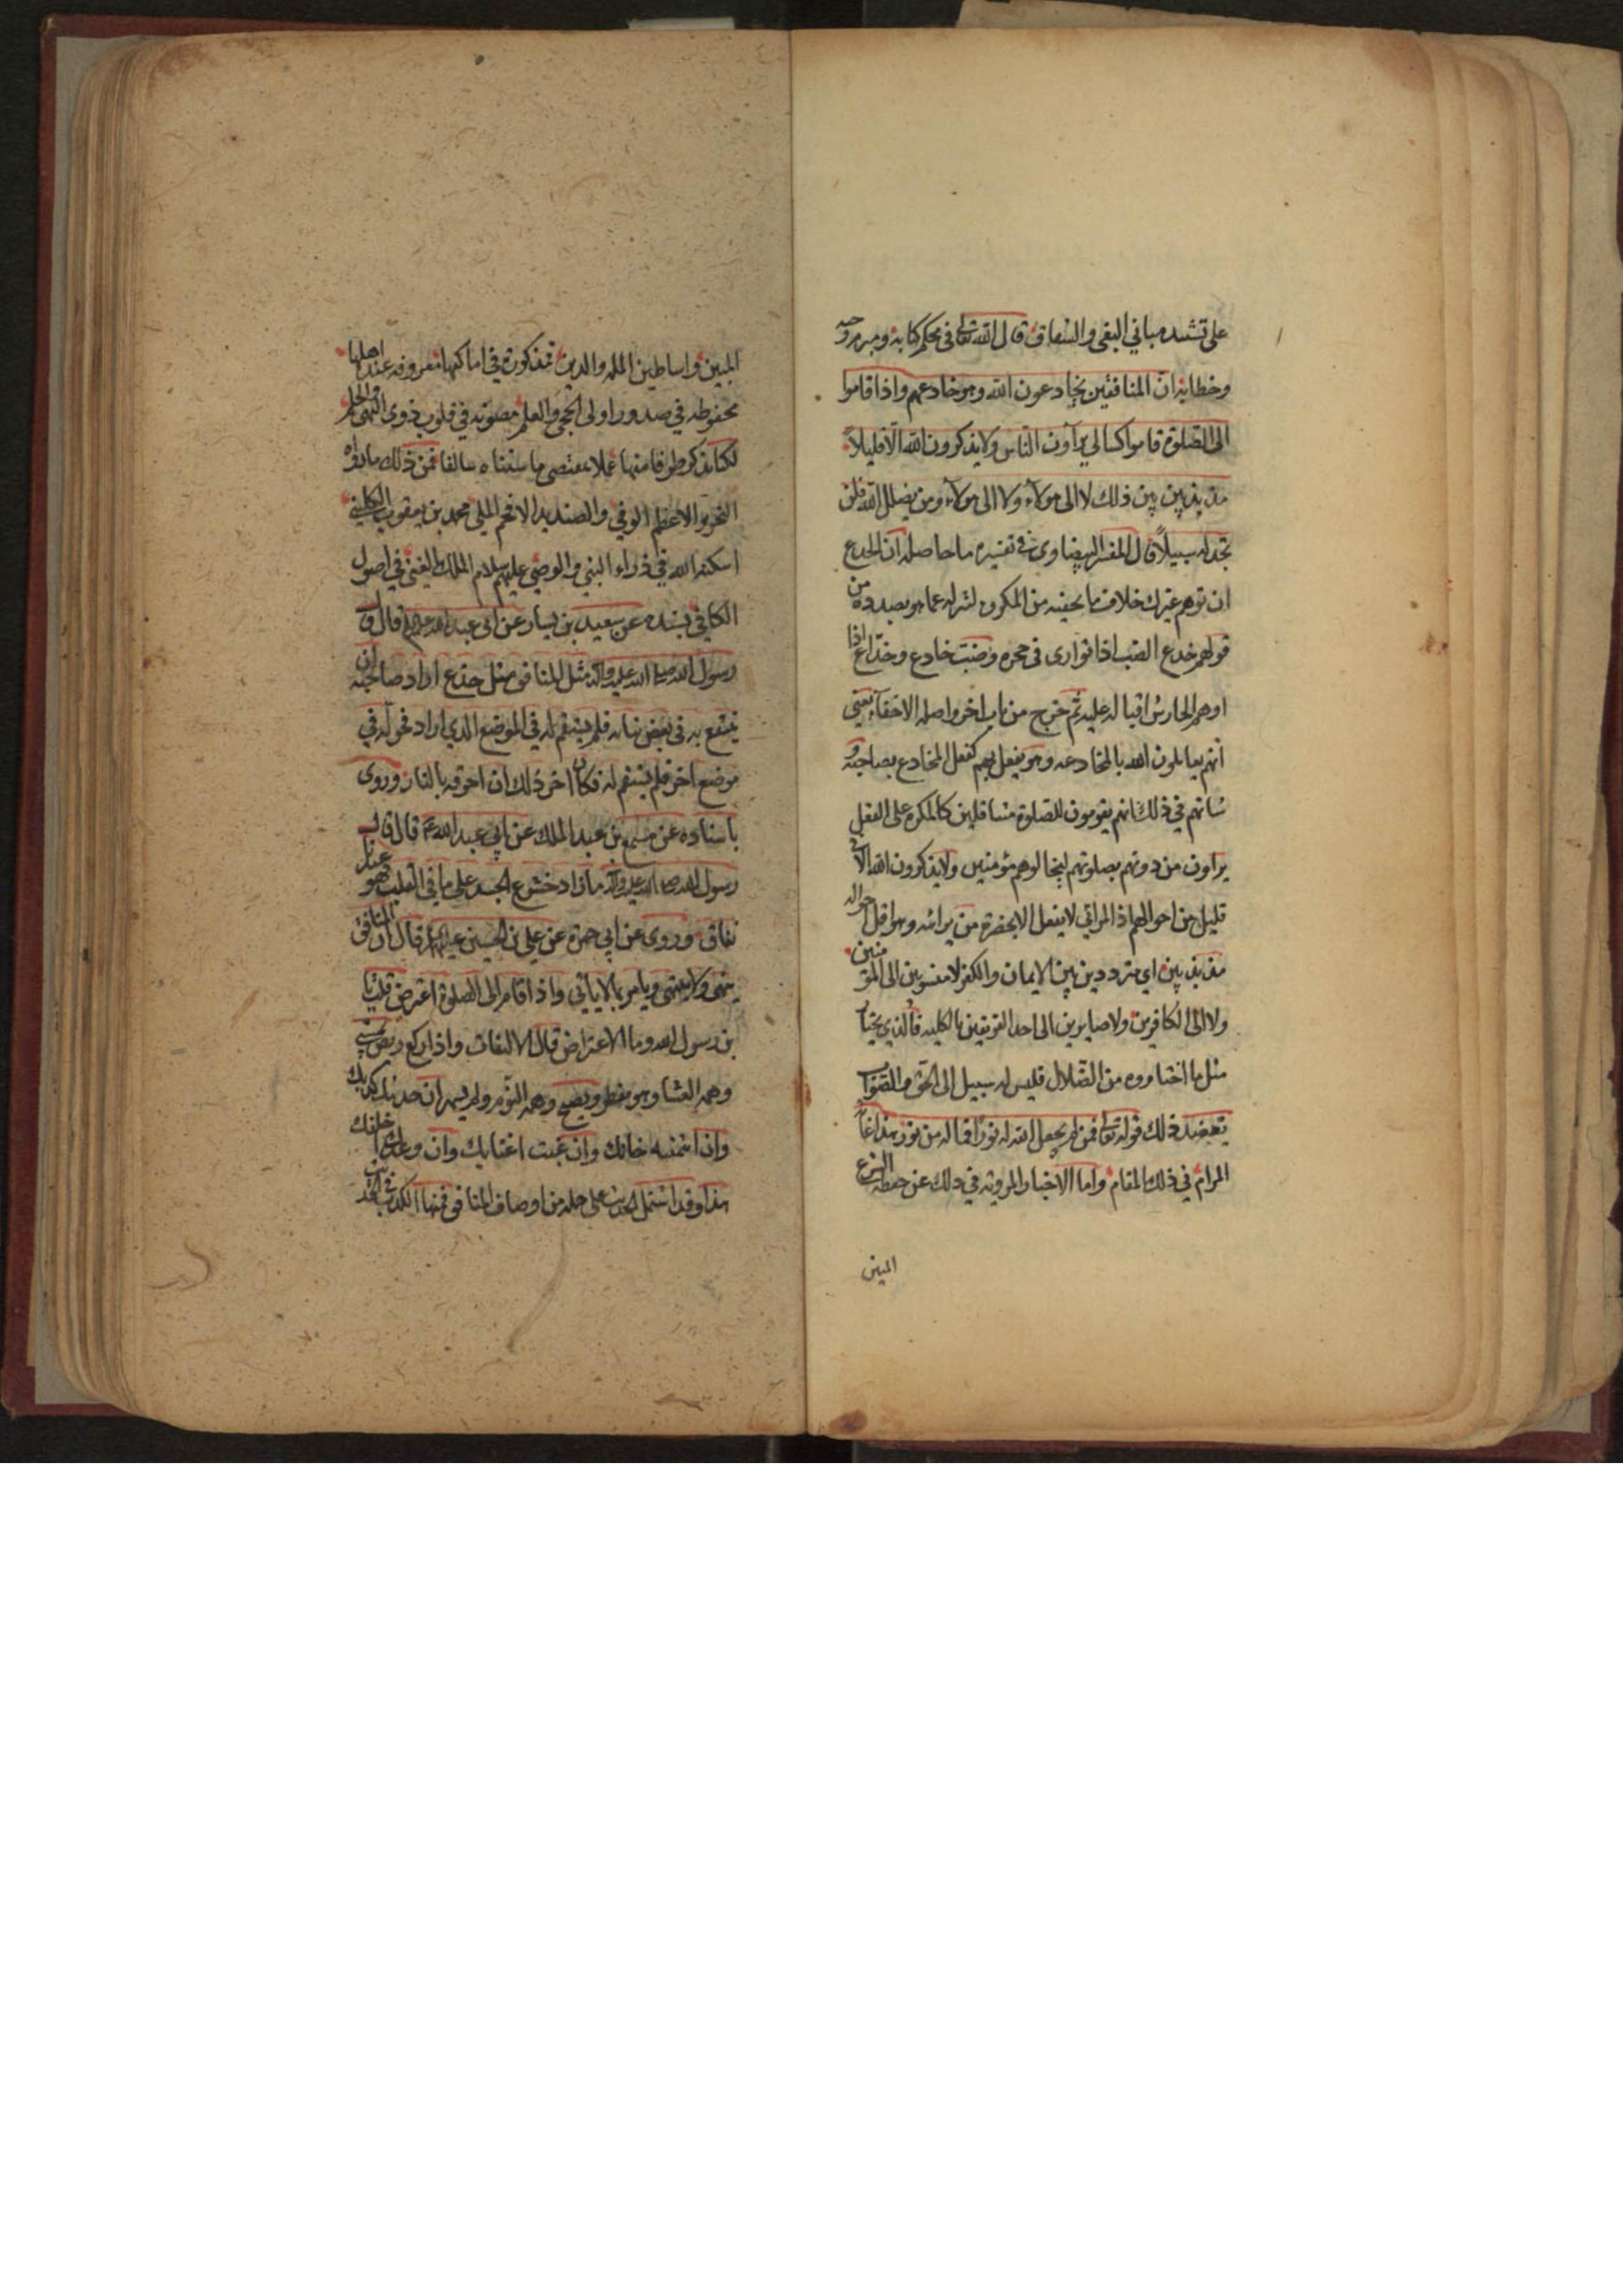 على تشييد مباني البغي والنفاق قال الله تعالى في محكم كتابه ومبرم وحيه
وخطابه ان المنافقين يخادعون الله وهو خادعهم واذا قاموا
الى الصلوة قاموا كسالى يرآون الناس ولا يذكرون الله الا قليلاً
مذبذبين بين ذلك لا الى هولآء ولا الى هولآء ومن يضلل الله فلن
تجد له سبيلاً قال المفسر البيضاوي في تفسيره ما حاصله ان الخدع
ان توهم غيرك خلاف ما تخفيه من المكروه لتنزله عما هو بصدده من
قولهم خدع الضب اذا توارى في جحره وضب خادع وخدّاع اذا
اوهم الحارش اقباله عليه ثم خرج من باب اخر واصله الاخفآء يعني
انهم يعاملون الله بالمخادعه وهو يفعل بهم كفعل المخادع بصاحبه و
شانهم في ذلك انهم يقومون للصلوة متثاقلين كالمكره على الفعل
يراون من دونهم بصلوتهم ليخالوهم مؤمنين ولا يذكرون الله الا في
قليل من احوالهم اذ المرائي لا يفعل الا بحضرة من يرائه وهو اقل احواله
مذبذبين اي مترددين بين الايمان والكفر لا منسوبين الى المؤمنين
ولا الى الكافرين ولا صايرين الى احد الفريقين بالكليه فالذي يختار
مثل ما اختاروه من الضلال فليس له سبيل الى الحق والصواب
يعضد ذلك قوله تعالى فمن لم يجعل الله له نوراً فما له من نور هذا غاية
المرام في ذلك المقام واما الاخبار المروية في ذلك عن حفظة الشرع
المبين
المبين واساطين المله والدين فمذكورة في اماكنها معروفه عند اهلها
محفوظه في صدور اولى الحجى والعلم مصونه في قلوب ذوى النهى والحلم
لكنا نذكر طرفا منها عملا بمقتضى ما سننّاه سالفا فمن ذلك ما رواه
النحرير الاعظم الوفي والصنديد الافخم الملي محمد بن يعقوب الكليني
اسكنه الله في ذراء النبي والوصي عليهم سلام الملك الغني في اصول
الكافي بسنده عن سعيد بن يسار عن ابي عبد الله عليه السلام قال قال
رسول الله صلى الله عليه وآله مثل المنافق مثل جذع اراد صاحبه ان
ينتفع به في بعض بنائه فلم يستقم له في الموضع الذي اراد فحوله في
موضع اخر فلم يستقم له فكان اخر ذلك ان احرقه بالنار وروى
باسناده عن مسمع بن عبد الملك عن ابي عبد الله ع قال قال
رسول الله صلى الله عليه وآله ما زاد خشوع الجسد على ما في القلب فهو عندنا
نفاق وروى عن ابي حمزة عن علي بن الحسين عليهما قال ان المنافق
ينهى ولا ينتهى ويامر بما لا ياتي واذا قام الى الصلوة اعترض قلت يا
بن رسول الله وما الاعتراض قال الالتفات واذا ركع ربض يمسي
وهمه العشا وهو مفطر ويصبح وهمه النوم ولم يسهر ان حدثك كذبك
وان ائتمنته خانك وان غبت اغتابك وان وعدك اخلفك
هذا وقد اشتمل الحديث على جمله من اوصاف المنافق فمنها الكذب في الحديث